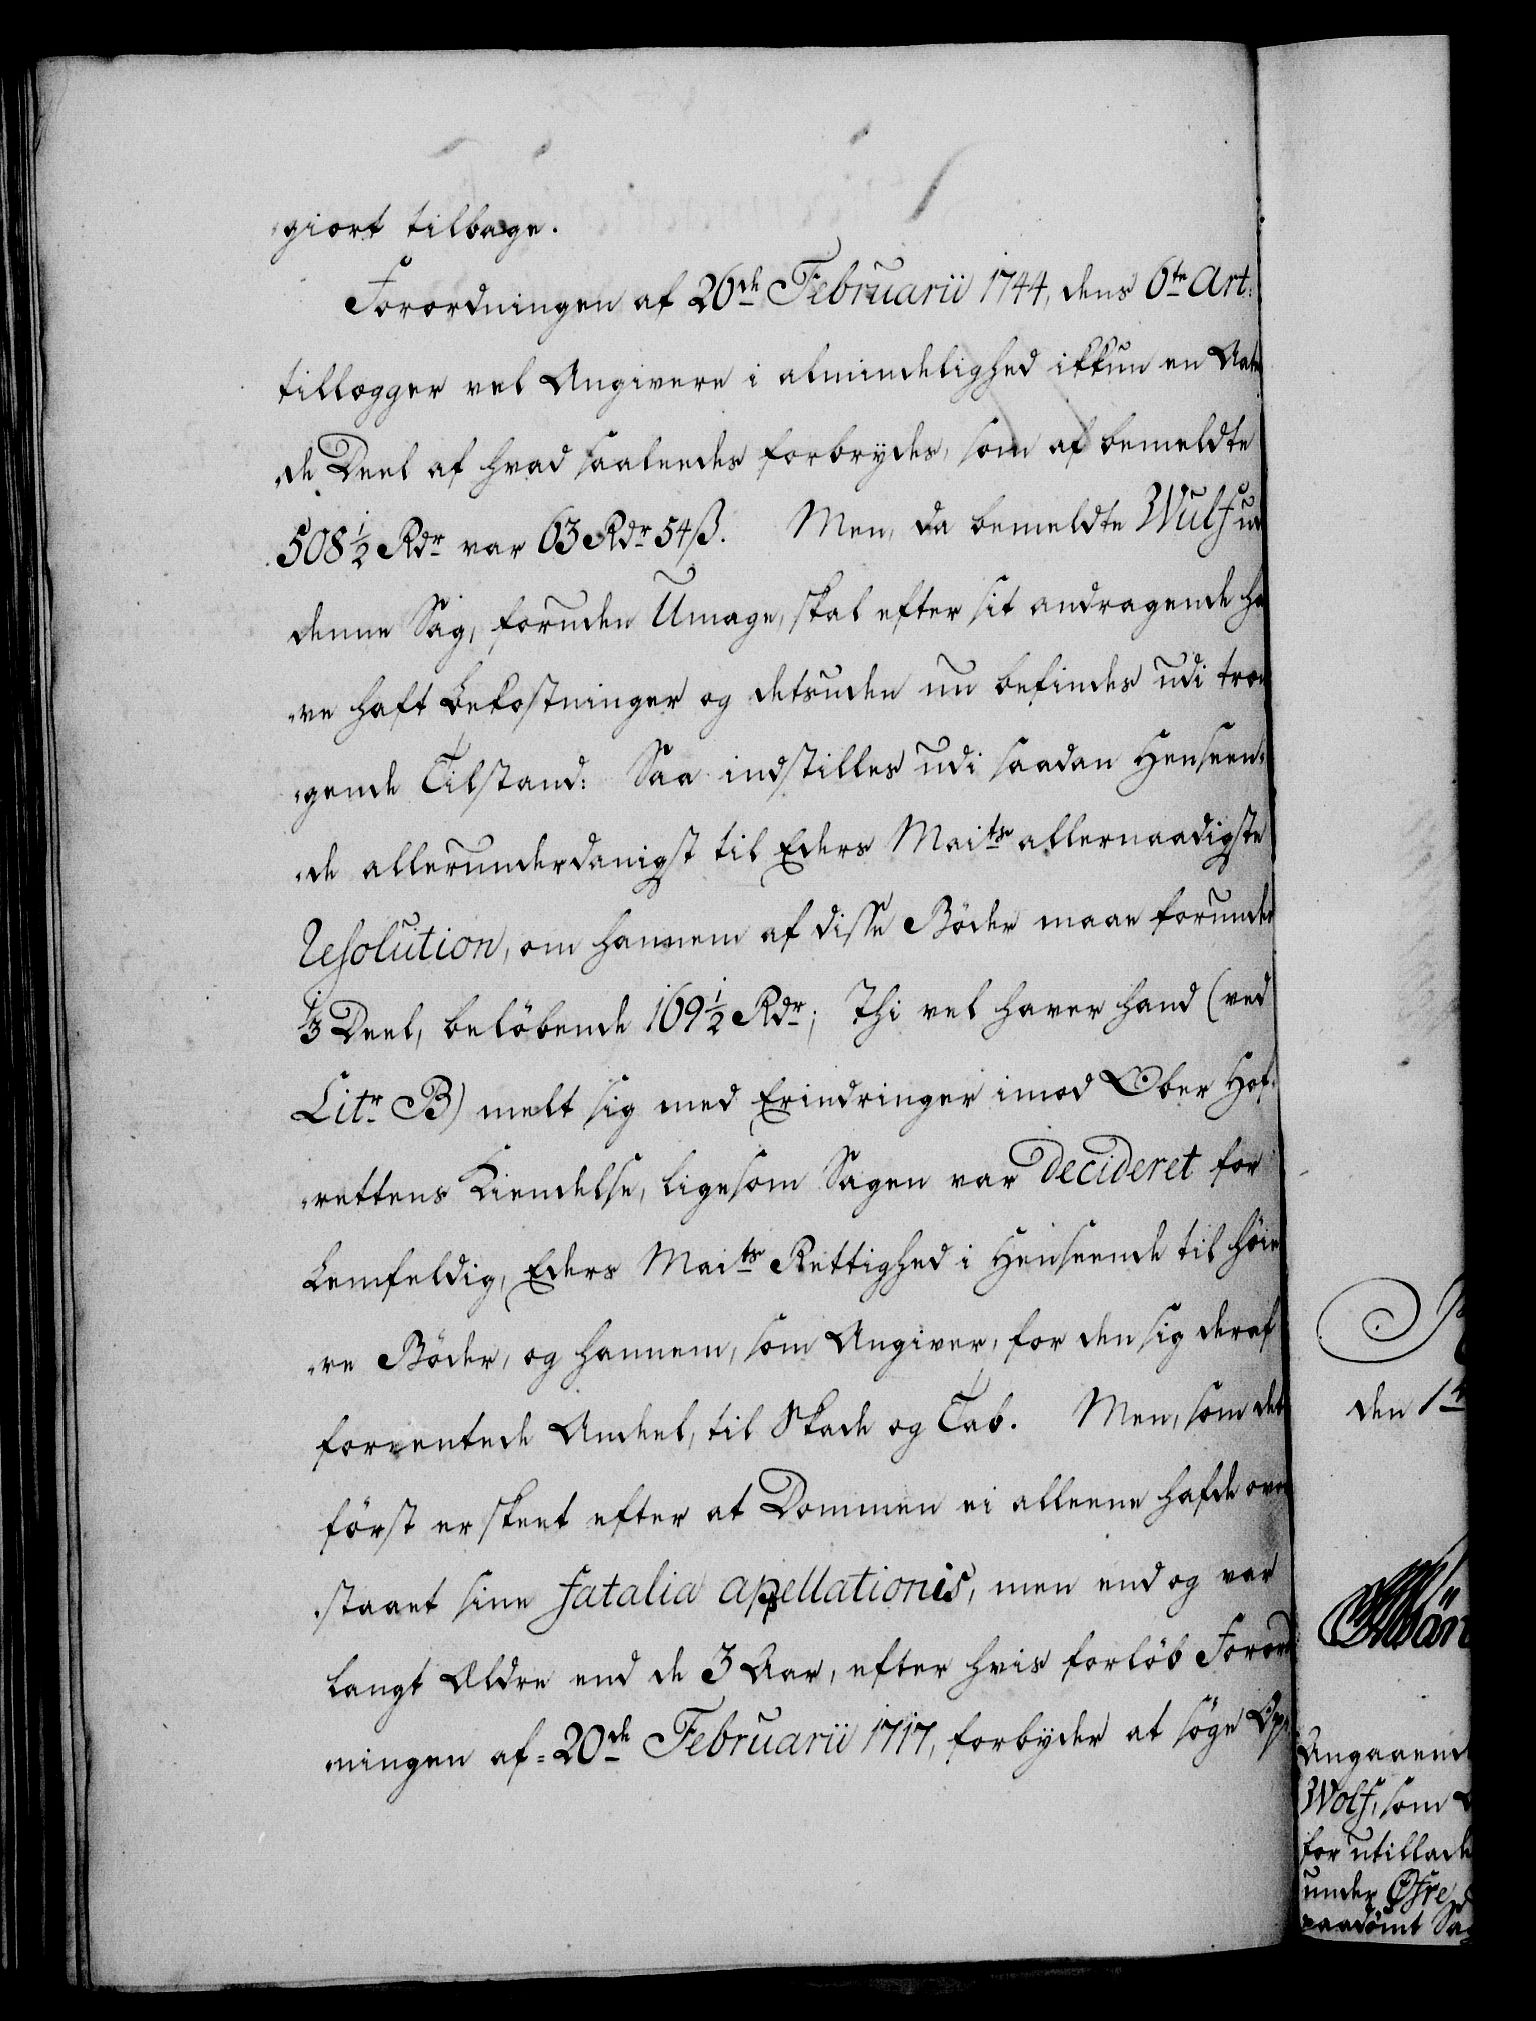 giort tilbage.
Forordningen af 26de Februarii 1744, dens 6te Art:
tillægger vel Angivere i almindelighed ikkun en
de Deel af hvad saaledes forbrydes, som af bemeldte
508½ Rdr var 63 Rdr 54 ß. Men, da bemeldte Wulf
denne Sag, foruden Umage, skal efter sit andragende ha
ve haft Bekostninger og desuden nu befindes udi træn
gende Tilstand: Saa indstilles udi saadan Henseen
de allerunderdanigst til Eders Maits allernaadigste
Resolution, om hannem af disse Böder maae forundes
⅓ Deel, belöbende 169½ Rdr; Thi vel haver hand (ved
Litr B) melt sig med Erindringer imod Ober Hof
rettens Kiendelse, ligesom Sagen var decideret for
Lemfeldig, Eders Maits Rettighed i Henseende til höie
re Böder, og hannem, som Angiver, for den sig deraf
forventede Andeel, til Skade og Tab. Men, som det
först er skeet efter at Dommen ei alleene hafde over
staaet sine fatalia apellationis, men end og var
langt Ældre end de 3 Aar, efter hvis forlöb Forord
ningen af 20de Februarii 1717, forbyder at söge Op
den 1
Angaaende
Wolf, som
for utillad
under Öfre
paadömt Sa